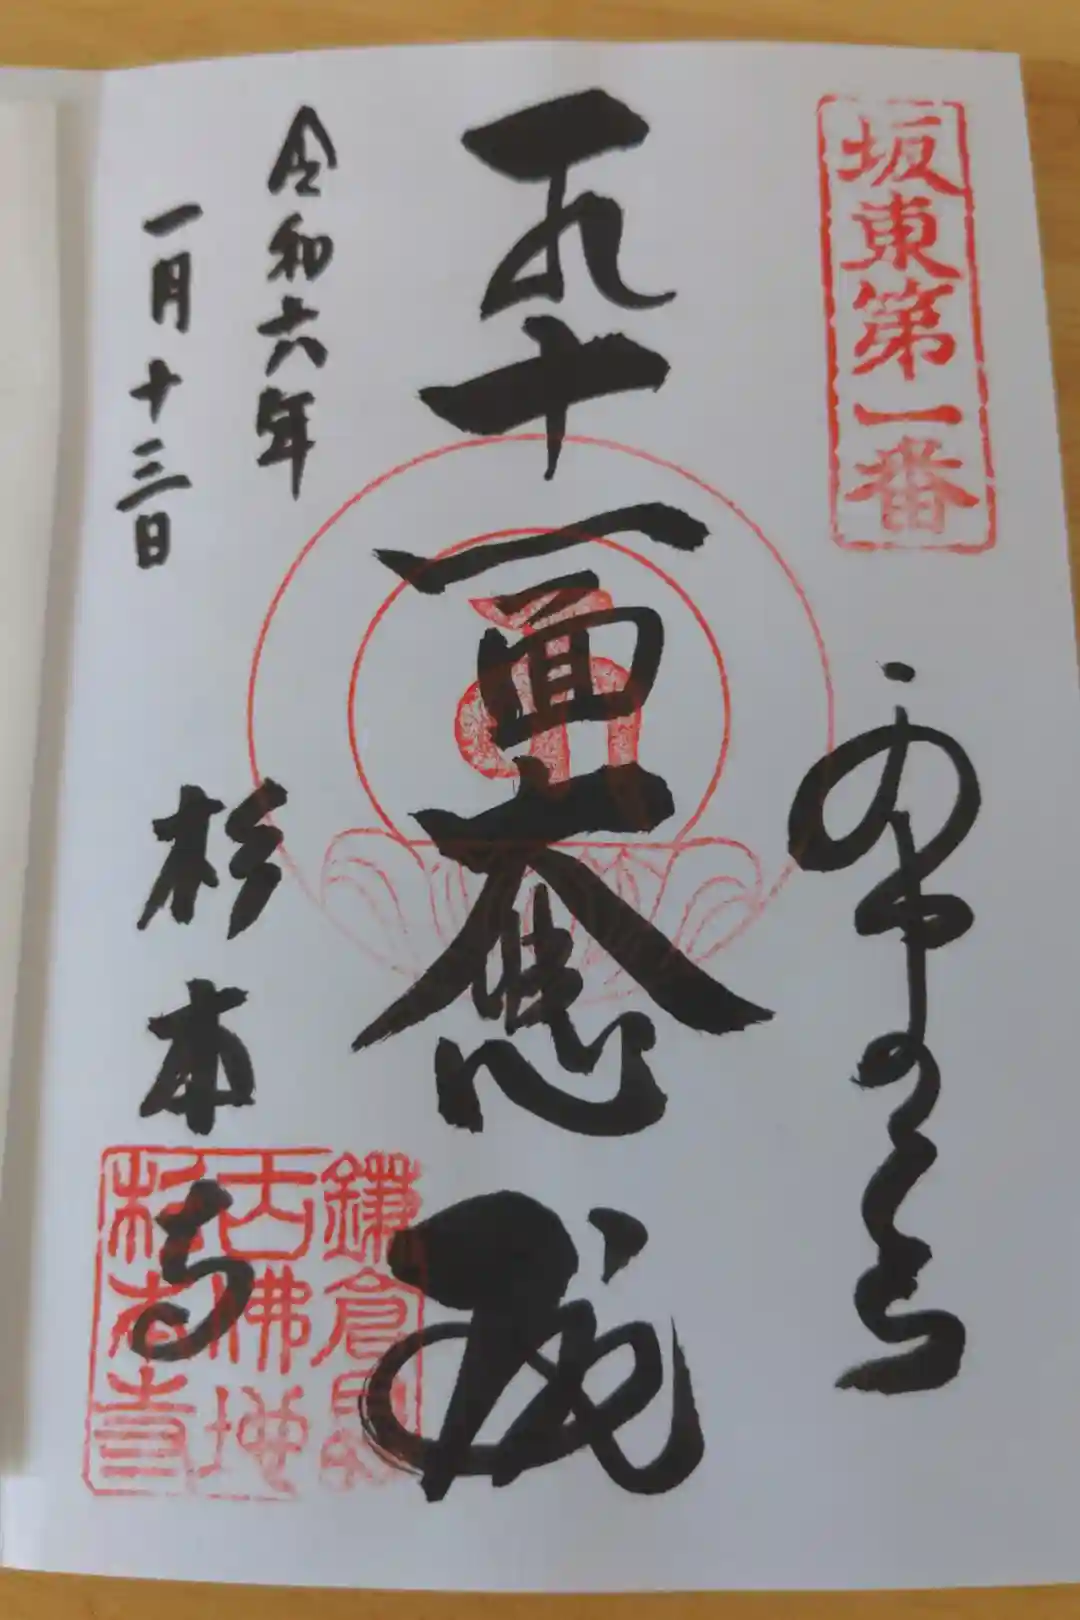 坂東第一番
十一面大悲殿
令和六年
一月十三日
杉本寺
鎌倉最初
古佛地
杉本寺